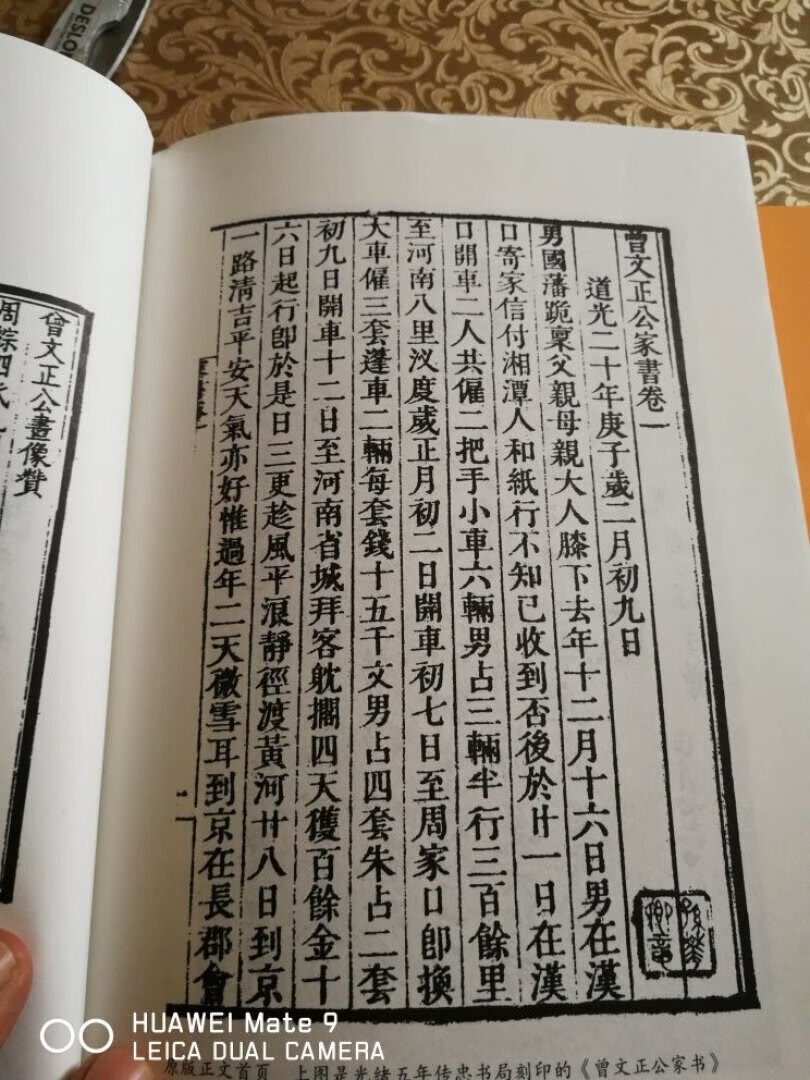 DESLO
曾文正公家書卷一
道光二十年庚子歲二月初九日
男國藩跪稟父親母親大人膝下去年十二月十六日男在漢
口寄家信付湘潭人和紙行不知已收到否後於廿一日在漢
口開車二人共僱二把手小車六輛男占三輛半行三百餘里
至河南八里汊度歲正月初二日開車初七日至周家口卽換
大車僱三套蓬車二輛每套錢十五千文男占四套朱占二套
初九日開車十二日至河南省城拜客躭擱四天獲百餘金十
六日起行卽於是日三更趁風平浪靜徑渡黃河廿八日到京
一路清吉平安天氣亦好惟過年二天微雪耳到京在長郡會
一
曾文正公畫像贊
周
原版正文首页 上图是光绪五年传忠书局刻印的《曾文正公家书》
HUAWEI Mate 9
LEICA DUAL CAMERA